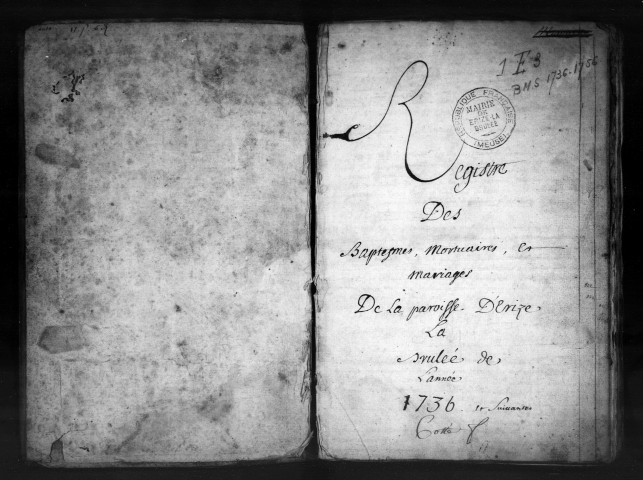 1 E 3
BMS 1736-1756
REPUBLIQUE FRANÇAISE
MAIRIE
DE
ERIZE-LA
BRULÉE
(MEUSE)
Registre
Des
Baptesmes, Mortuaires, et
mariages
De La paroisse D'Erize
La
Brulée de
L'année
1736 et suivantes
Cotté